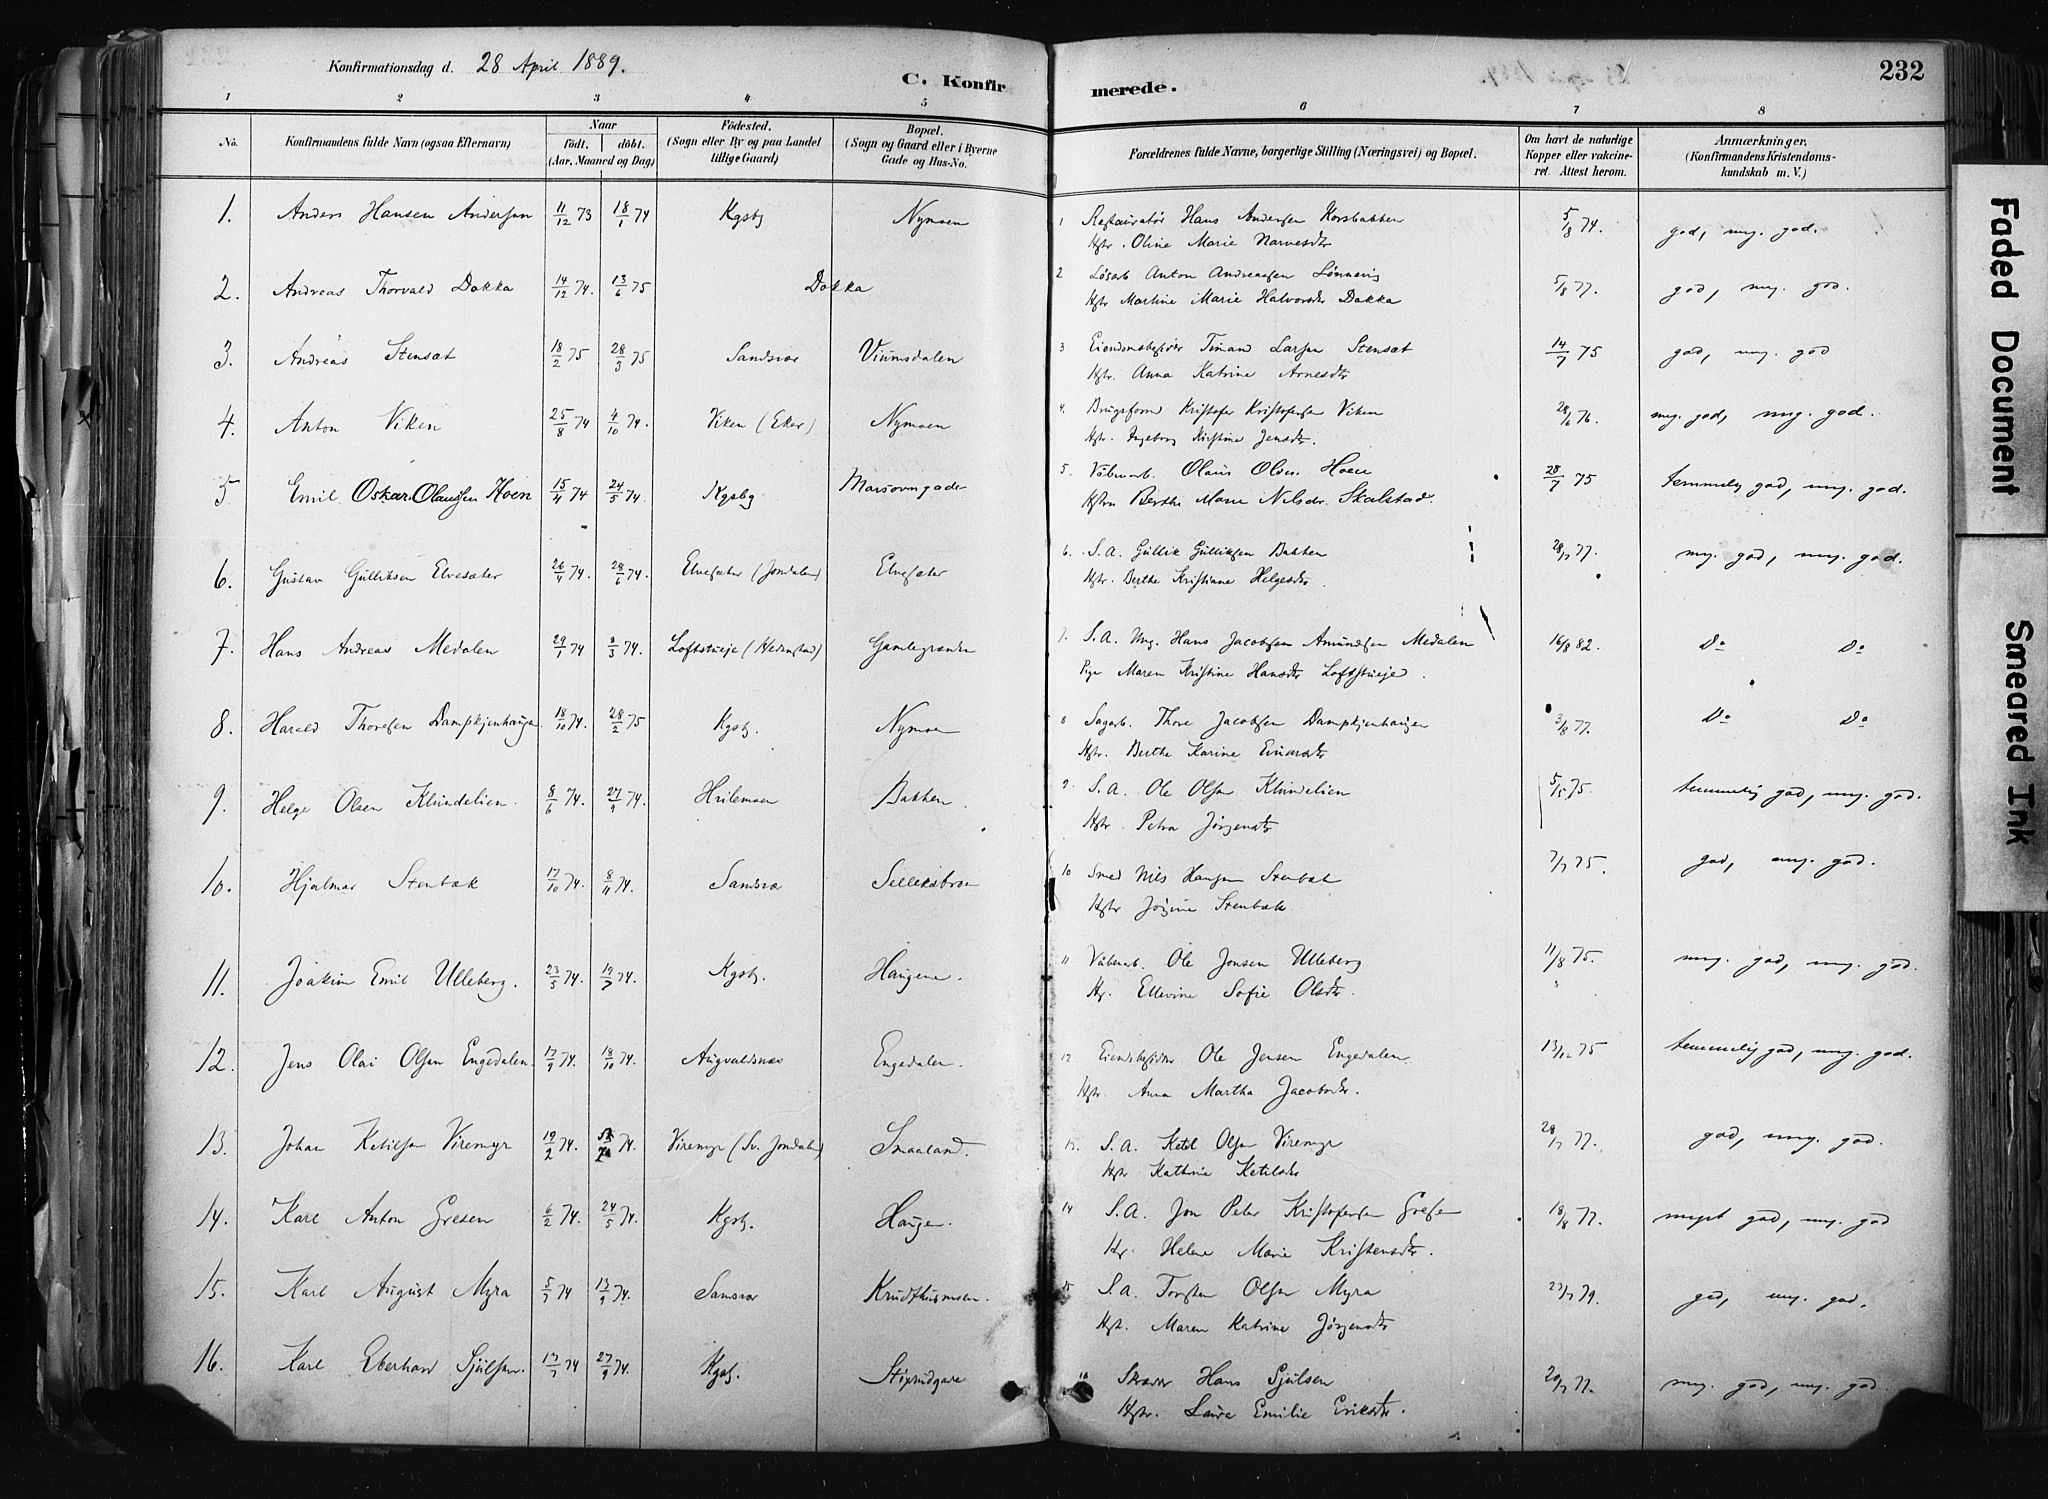 Konfirmationsdag d. 28 April 1889.
C. Konfirmerede.
232
1 2 3 4 5 6 7 8
No.
Konfirmandens fulde Navn (ogsaa Efternavn)
Naar
födt. döbt.
(Aar, Maaned og Dag)
Födested.
(Sogn eller By og paa Landet
tillige Gaard)
Bopæl.
(Sogn og Gaard eller i Byerne
Gade og Hus-No.
Forældrenes fulde Navne, borgerlige Stilling (Næringsvei) og Bopæl.
Om havt de naturlige
Kopper eller vakcine-
ret. Attest herom.
Anmærkninger.
(Konfirmandens Kristendoms-
kundskab m. V.)
1. Anders Hansen Andersen 11/12 73 18/1 74 Kgsbg Nymoen
1 Restauratør Hans Andersen Korsbakken 5/8 74. god, mg. god.
Hstr. Oline Marie Narvesdtr
2. Andreas Thorvald Dokka 14/12 74. 13/6 75 Dokka
2 Løsarb Anton Andreassen Lønnevig 5/8 77. god, mg. god.
Hstr Martine Marie Halvorsdtr Dokka
3. Andreas Stensæt 18/2 75 28/3 75 Sandsvær Vinnesdalen
3 Eiendomsbesidder Tinand Larsen Stensæt 14/7 75 god, mg. god
Hstr. Anna Katrine Arnesdtr
4. Anton Viken 25/8 74 4/10 74. Viken (Eker) Nymoen
4. Brugsform Kristofer Kristofersen Viken 28/6 76. mg. god, mg. god.
Hstr. Ingeborg Kirstine Jensdtr.
5 Emil Oskar Olaussen Hoen 15/4 74 24/5 74. Kgsbg Marsovngade
5. Våbenarb. Olaus Olsen Hoen 28/7 75 temmelig god, mg. god.
Hstru Berthe Marie Nilsdr. Skalstad.
6. Gustav Gulliksen Elvesæter 26/4 74. 28/6 74. Elvesæter (Jondalen) Elvesæter
6. S. A. Gullik Gulliksen Bakken 28/7 77. mg. god, mg. god.
Hstr. Berthe Kristiane Helgesdtr
7. Hans Andreas Medalen 29/1 74 8/3 74. Loftstueje (Hedenstad) Gamlegrænden
7. S. A. Ung. Hans Jacobsen Amundsen Medalen 16/8 82. Do Do
Pige Maren Kristine Hansdtr Loftstueje.
8. Harald Thoresen Dampkjenhaugen 18/10 74. 28/2 75 Kgsbg. Nymoen
8 Sagarb. Thore Jacobsen Dampkjenhaugen 3/8 77. Do Do
Hstr. Berthe Karine Einarsdtr
9. Helge Olsen Klundelien. 8/6 74. 27/9 74. Hvilemoen Bakken.
9. S. A. Ole Olsen Klundelien 5/5 75. temmelig god, mg. god.
Hstr. Petra Jørgensdtr
10. Hjalmar Stenbæk 17/10 74. 8/11 74. Sandsvær Sellikebroen
10 Smed Nils Hansen Stenbæk 7/7 75. god, mg. god.
Hstr Jørgine Stenbæk
11. Joakim Emil Ulleberg. 23/5 74. 19/7 74. Kgsbg. Haugene.
11 Våbenarb. Ole Jonsen Ulleberg 11/8 75. mg. god, mg. god.
Hr. Ellevine Sofie Olsdtr.
12. Jens Olai Olsen Engedalen. 17/9 74. 18/10 74. Augvaldsnæs Engedalen.
12 Eiendbesidder Ole Jensen Engedalen. 13/12 75 temmelig god, mg. god.
Hstr. Anna Martha Jacobsdtr.
13. Johan Ketilsen Viremyr 19/2 74. 74. Viremyr (Sv. Jondalen) Smaaland.
13. S. A. Ketil Olsen Viremyr 28/7 77. god, mg. god.
Hstr Kathrine Ketilsdtr
14. Karl Anton Gresen 6/2 74. 24/5 74. Kgsbg. Haugen.
14 S. A. Jon Peter Kristofersen Gresen 18/8 77. meget god, mg. god
Hr. Helene Marie Kristensdtr.
15. Karl August Myra 5/7 74 13/9 74. Sansvær Krudthusmoen.
15 S. A. Torsten Olsen Myra 27/7 79. god, mg. god.
Hstr. Maren Katrine Jørgensdtr
16. Karl Eberhard Sjulsen. 17/7 74 27/9 74. Kgsbg. Støperudgade
16 Skræder Hans Sjulsen 20/7 77. mg. god, mg. god.
Hstr. Laura Emilie Eriksdtr.
Faded Document
Smeared Ink